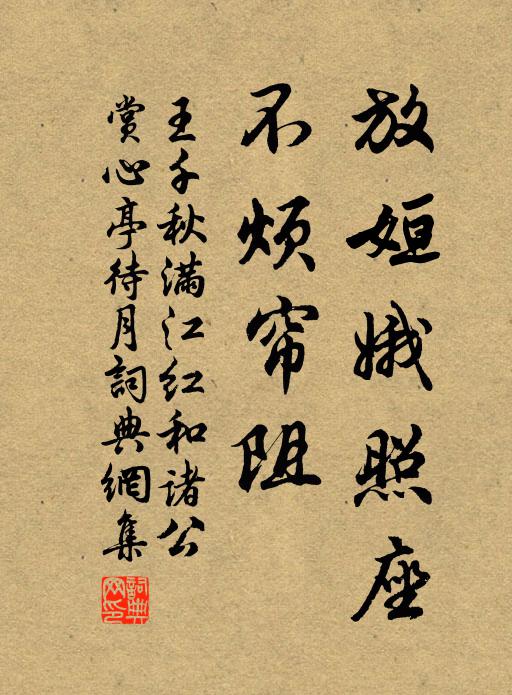 放姮娥照座
不烦帘阻
王千秋满江红和诸公
赏心亭待月词典网集